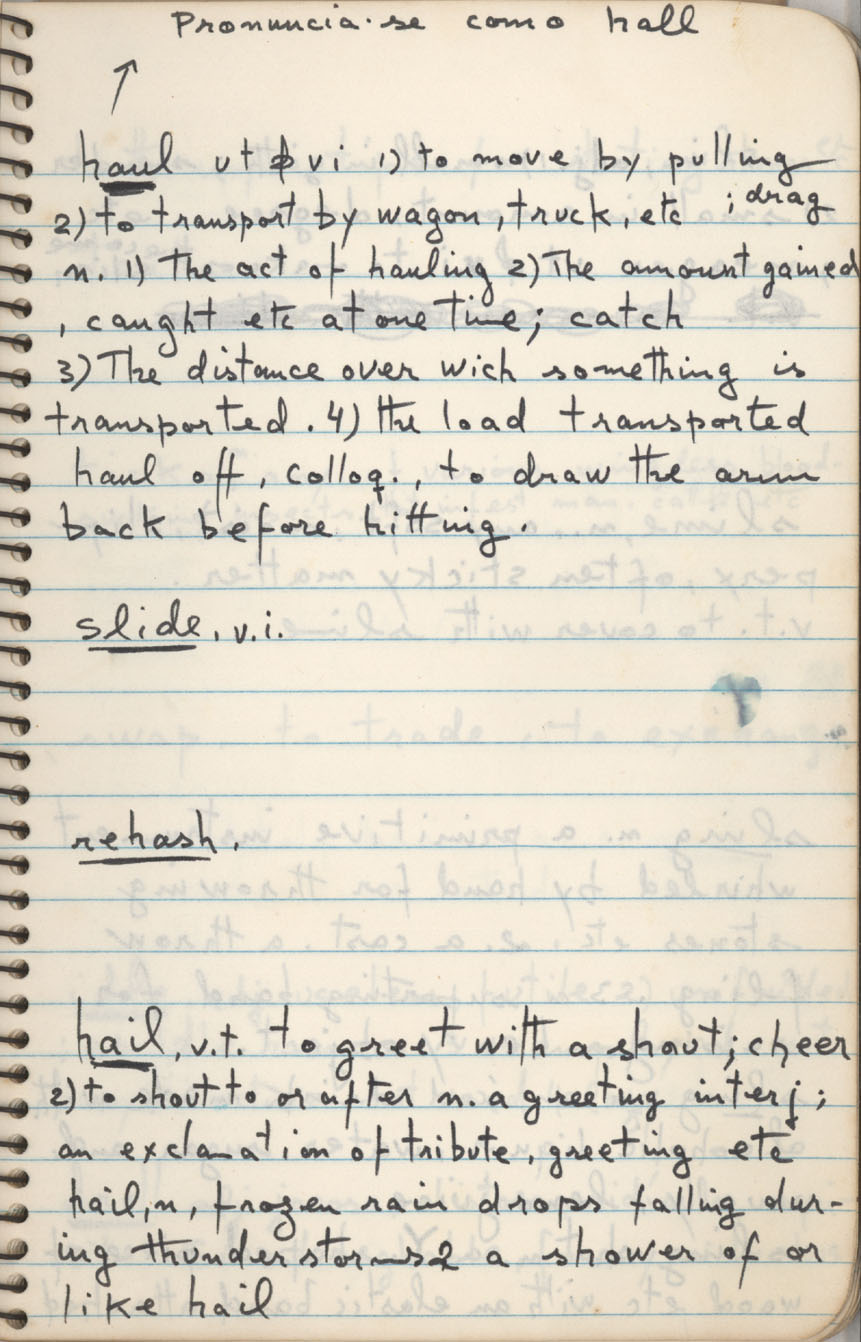 Pronuncia-se como hall
haul vt & vi 1) to move by pulling
; drag
2) to transport by wagon, truck, etc
n. 1) The act of hauling 2) The amount gained
, caught etc at one time; catch
3) The distance over wich something is
transported. 4) the load transported
haul off, colloq., to draw the arm
back before hitting.
slide, v.i.
rehash.
hail, v.t. to greet with a shout; cheer
2) to shout to or after n. a greeting interj;
an exclamation of tribute, greeting etc
hail, n, frozen rain drops falling dur-
ing thunderstorms 2 a shower of or
like hail